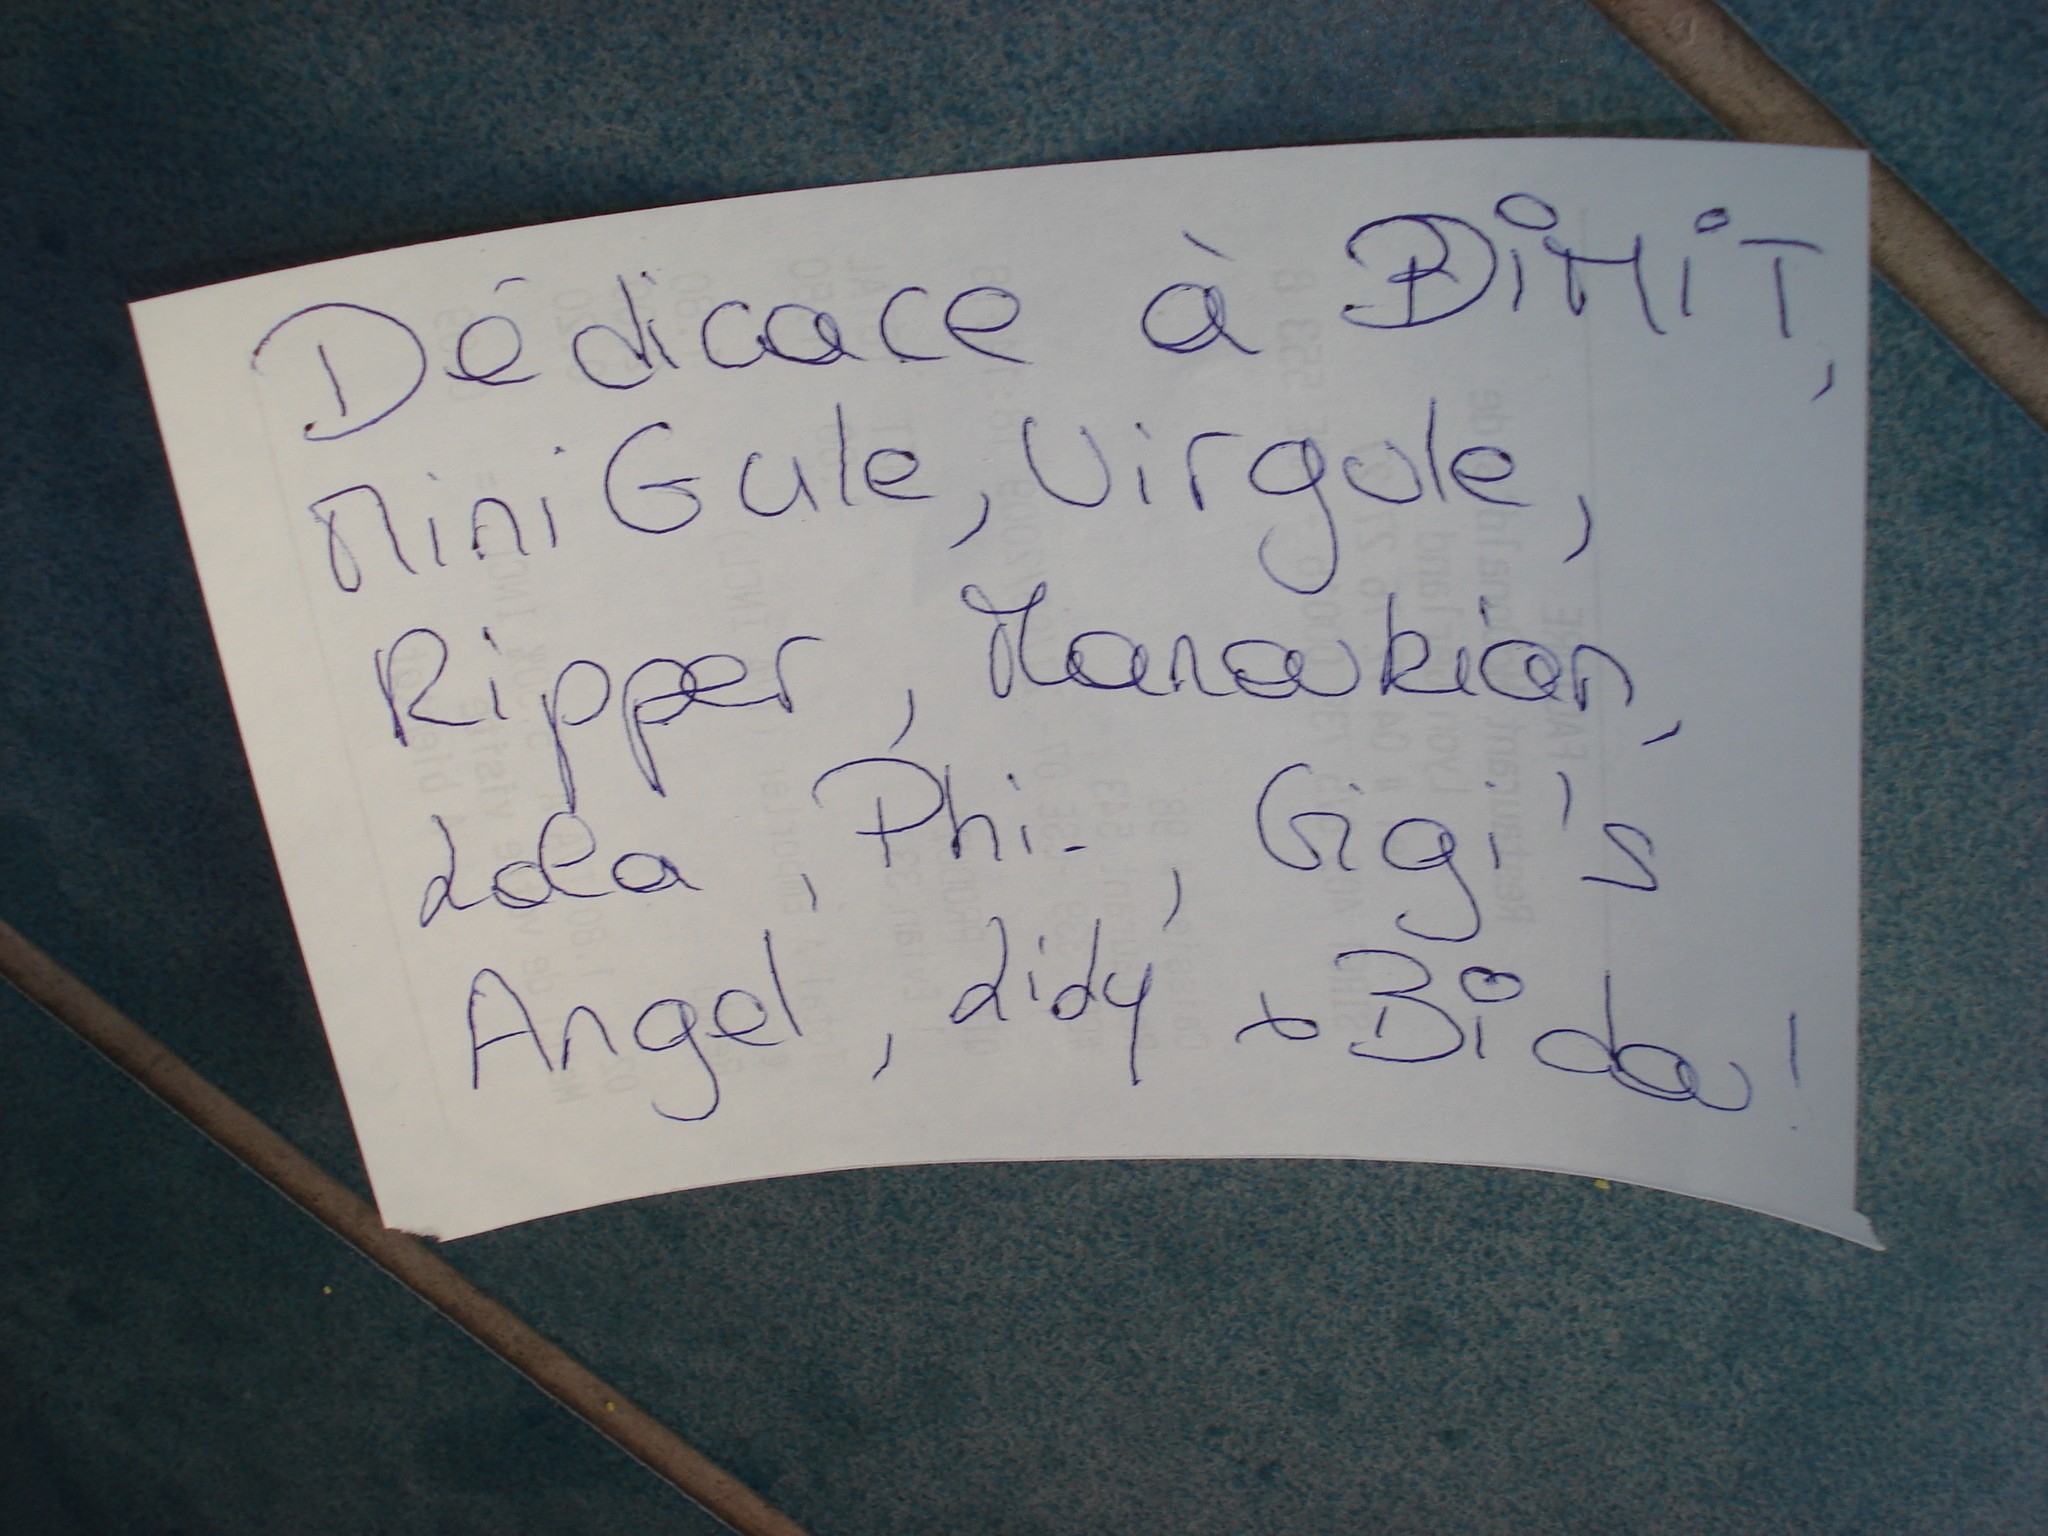 Dédicace à DiMiT,
Mini Gule, Virgule,
Ripper, Manoukian,
Lola, Phi-, Gigi's
Angel, Lidy & Bidou!